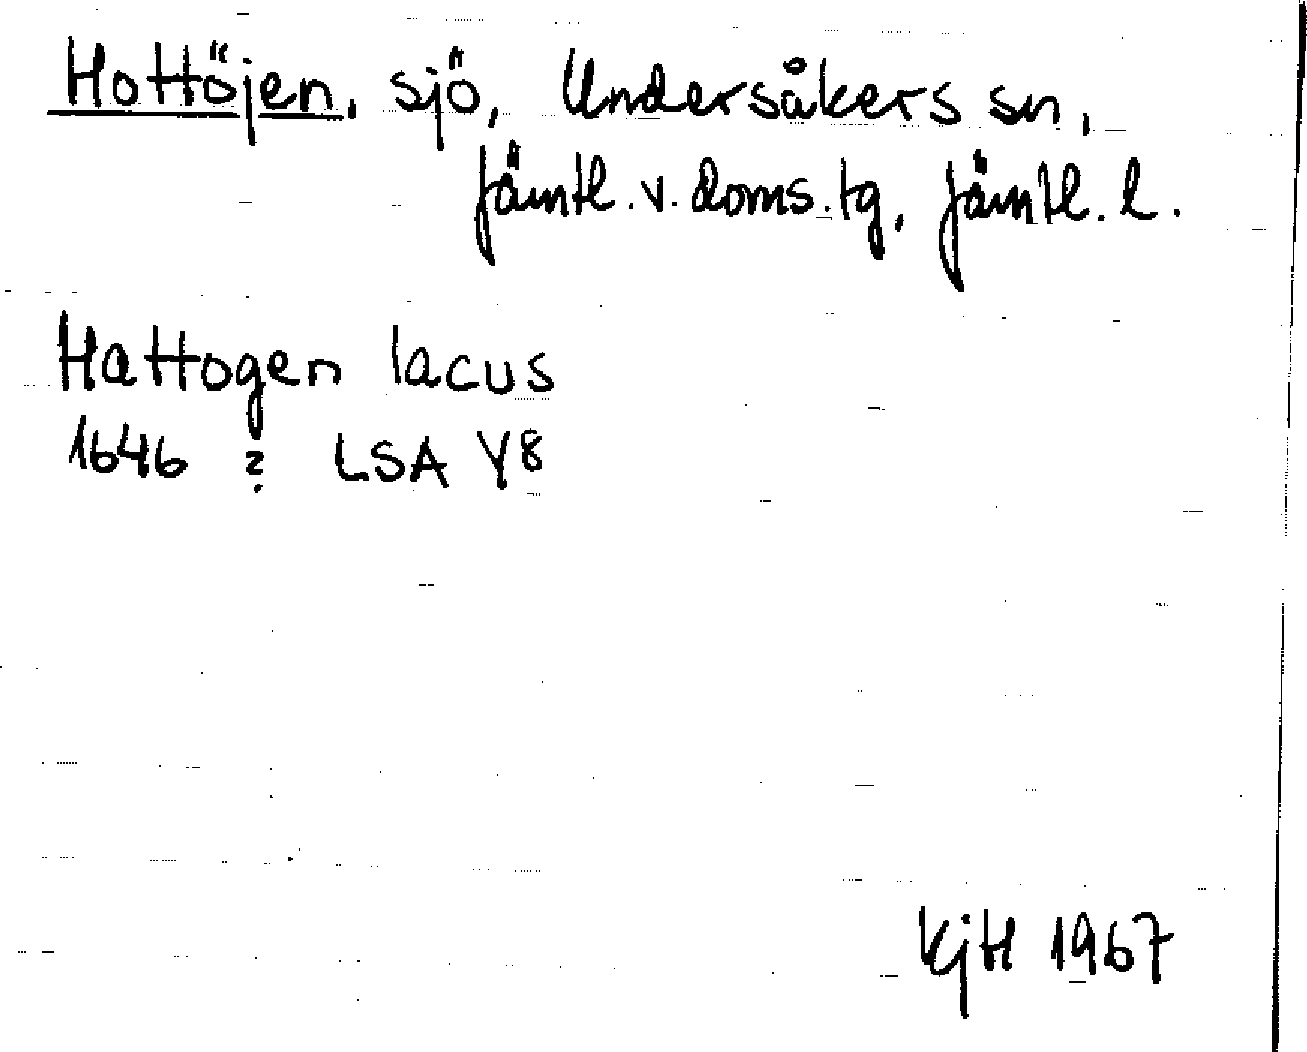 Hottöjen, sjö, Undersåkers sn,
Jämtl. v. doms. tg, Jämtl. l.
Hattogen lacus
1646 ? LSA Y8
KjH 1967